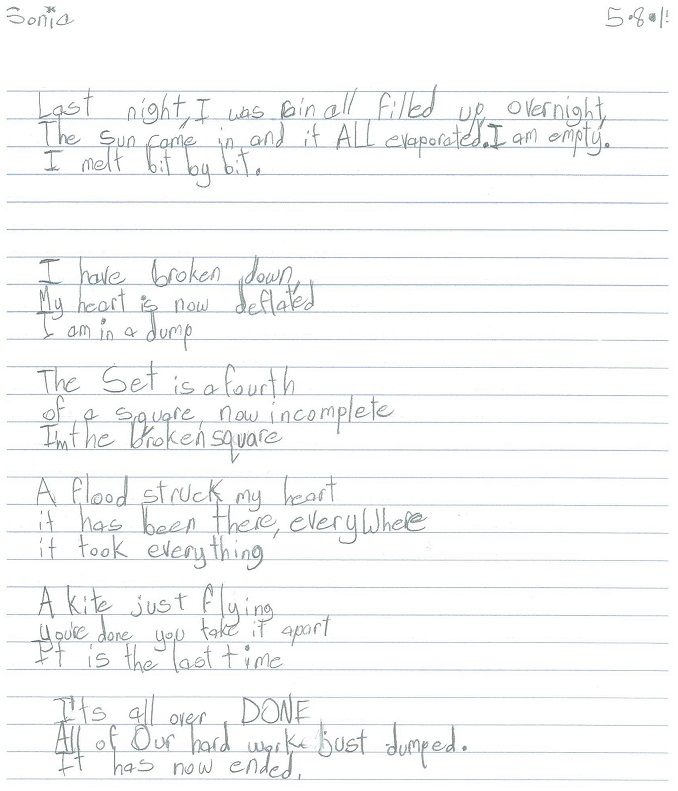 Sonia 5.8.1
Last night, I was rain all filled up overnight,
The sun came in and it ALL evaporated. I am empty.
I melt bit by bit.
I have broken down,
My heart is now deflated
I am in a dump
The Set is a fourth
of a square, now incomplete
I'm the broken square
A flood struck my heart
it has been there, everywhere
it took everything
A kite just flying
you're done you take it apart
It is the last time
It's all over DONE
All of Our hard work just dumped.
It has now ended.